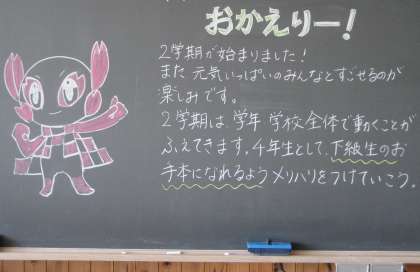 おかえりー!
2学期が始まりました!
また 元気いっぱいのみんなとすごせるのが
楽しみです。
2学期は、学年 学校全体で動くことが
ふえてきます。4年生として、下級生のお
手本になれるよう メリハリをつけていこう。